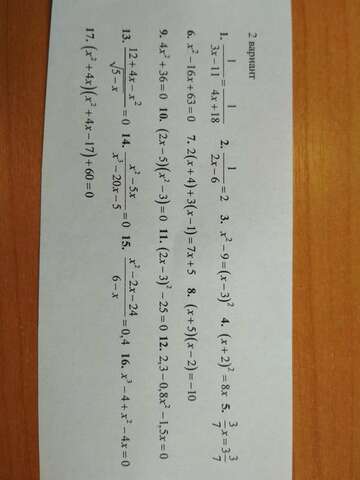 2 вариант
1. 1/(3x−11) = 1/(4x+18) 2. 1/(2x−6) = 2 3. x² − 9 = (x − 3)² 4. (x + 2)² = 8x 5. 3/7 x = 3 3/7
6. x² −16x + 63 = 0 7. 2(x + 4) + 3(x −1) = 7x + 5 8. (x + 5)(x − 2) = −10
9. 4x² + 36 = 0 10. (2x − 5)(x² − 3) = 0 11. (2x − 3)² − 25 = 0 12. 2,3 − 0,8x² − 1,5x = 0
13. (12 + 4x − x²)/√(5 − x) = 0 14. (x² − 5x)/(x³ − 20x − 5) = 0 15. (x² − 2x − 24)/(6 − x) = 0,4 16. x³ − 4 + x² − 4x = 0
17. (x² + 4x)(x² + 4x −17) + 60 = 0